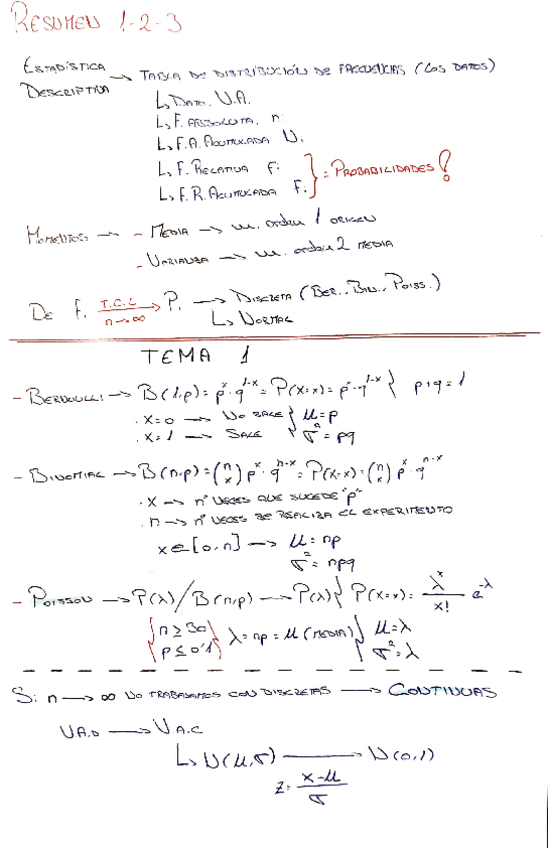 RESUMEN 1-2-3
ESTADÍSTICA
DESCRIPTIVA → TABLA DE DISTRIBUCIÓN DE FRECUENCIAS (LOS DATOS)
↳ DATO. V.A.
↳ F. ABSOLUTA. ni
↳ F.A. ACUMULADA Ni
↳ F. RELATIVA fi
↳ F.R. ACUMULADA Fi } = PROBABILIDADES!
MOMENTOS → - MEDIA → m. orden 1 ORIGEN
- VARIANZA → m. orden 2 MEDIA
DE F. T.C.L n→∞ → P. → DISCRETA (BER., BIN., POISS.)
↳ NORMAL
TEMA 1
- BERNOULLI → B(1,p) = p^x · q^(1-x) = P(X=x) = p^x · q^(1-x) { p+q=1
· X=0 → NO SALE } μ=p
· X=1 → SALE } σ²=pq
- BINOMIAL → B(n,p) = (n x) p^x · q^(n-x) = P(X=x) = (n x) p^x · q^(n-x)
· X → nº VECES QUE SUCEDE "p"
· n → nº VECES SE REALIZA EL EXPERIMENTO
x∈[0,n] → μ=np
σ²=npq
- POISSON → P(λ)/B(n,p) → P(λ) } P(X=x) = λ^x / x! e^-λ
{ n≥30
p≤0'1 } λ=np=μ (MEDIA) } μ=λ
σ²=λ
Si n → ∞ NO TRABAJAMOS CON DISCRETAS → CONTINUAS
V.A.D → V.A.C
↳ N(μ,σ) → N(0,1)
z = x-μ / σ